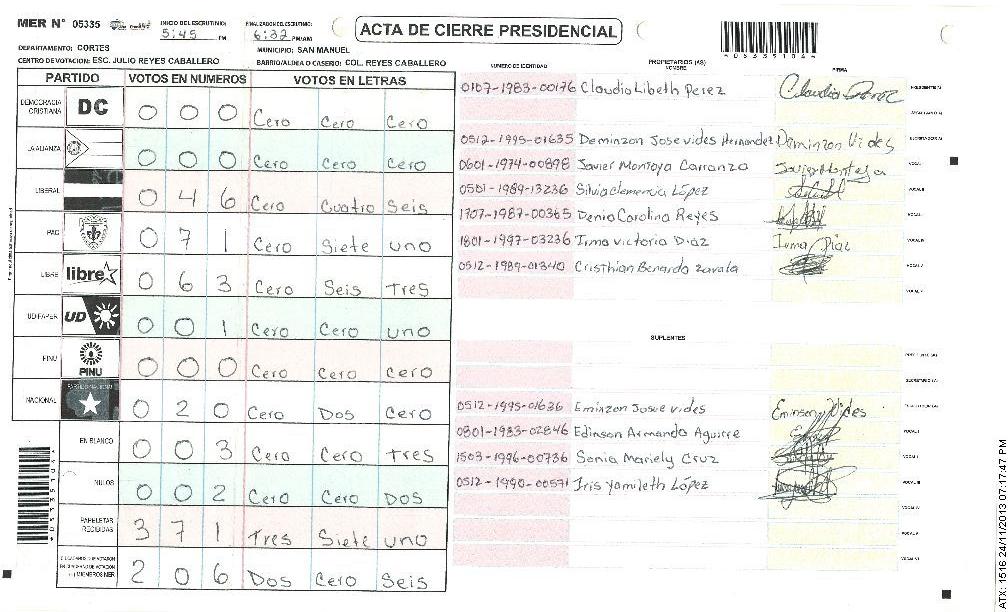 MER N° 05335
INICIO DEL ESCRUTINIO: 5:45 PM
FINALIZACION DEL ESCRUTINIO: 6:32 PM/AM
ACTA DE CIERRE PRESIDENCIAL
DEPARTAMENTO: CORTES
MUNICIPIO: SAN MANUEL
CENTRO DE VOTACION: ESC. JULIO REYES CABALLERO
BARRIO/ALDEA O CASERIO: COL. REYES CABALLERO
PARTIDO VOTOS EN NUMEROS VOTOS EN LETRAS
DEMOCRACIA CRISTIANA DC 0 0 0 Cero Cero Cero
LA ALIANZA 0 0 0 Cero Cero Cero
LIBERAL 0 4 6 Cero Cuatro Seis
PAC 0 7 1 Cero Siete uno
LIBRE libre 0 6 3 Cero Seis Tres
UD FAPER UD 0 0 1 Cero Cero uno
PINU PINU 0 0 0 Cero Cero Cero
NACIONAL PARTIDO NACIONAL 0 2 0 Cero Dos Cero
EN BLANCO 0 0 3 Cero Cero Tres
NULOS 0 0 2 Cero Cero Dos
PAPELETAS RECIBIDAS 3 7 1 Tres Siete uno
2 0 6 Dos Cero Seis
NUMERO DE IDENTIDAD
PROPIETARIOS (AS)
NOMBRE
FIRMA
0107-1983-00176 Claudio Libeth Perez
0512-1995-01635 Deminzon Josevides Hernandez Deminzon Vides
0601-1974-00898 Javier Montoya Carranza
0501-1989-13236 Silvia Clemencia López
1707-1987-00365 Denia Carolina Reyes
1801-1997-03236 Irma Victoria Diaz Irma Diaz
0512-1989-01340 Cristhian Benardo Zavala
SUPLENTES
0512-1995-01636 Eminzon Josue vides Eminson Vides
0801-1983-02846 Edinson Armando Aguirre
1503-1996-00736 Sonia Mariely Cruz
0512-1990-00571 Iris Yamileth López
ATX: 1516 24/11/2013 07:17:47 PM